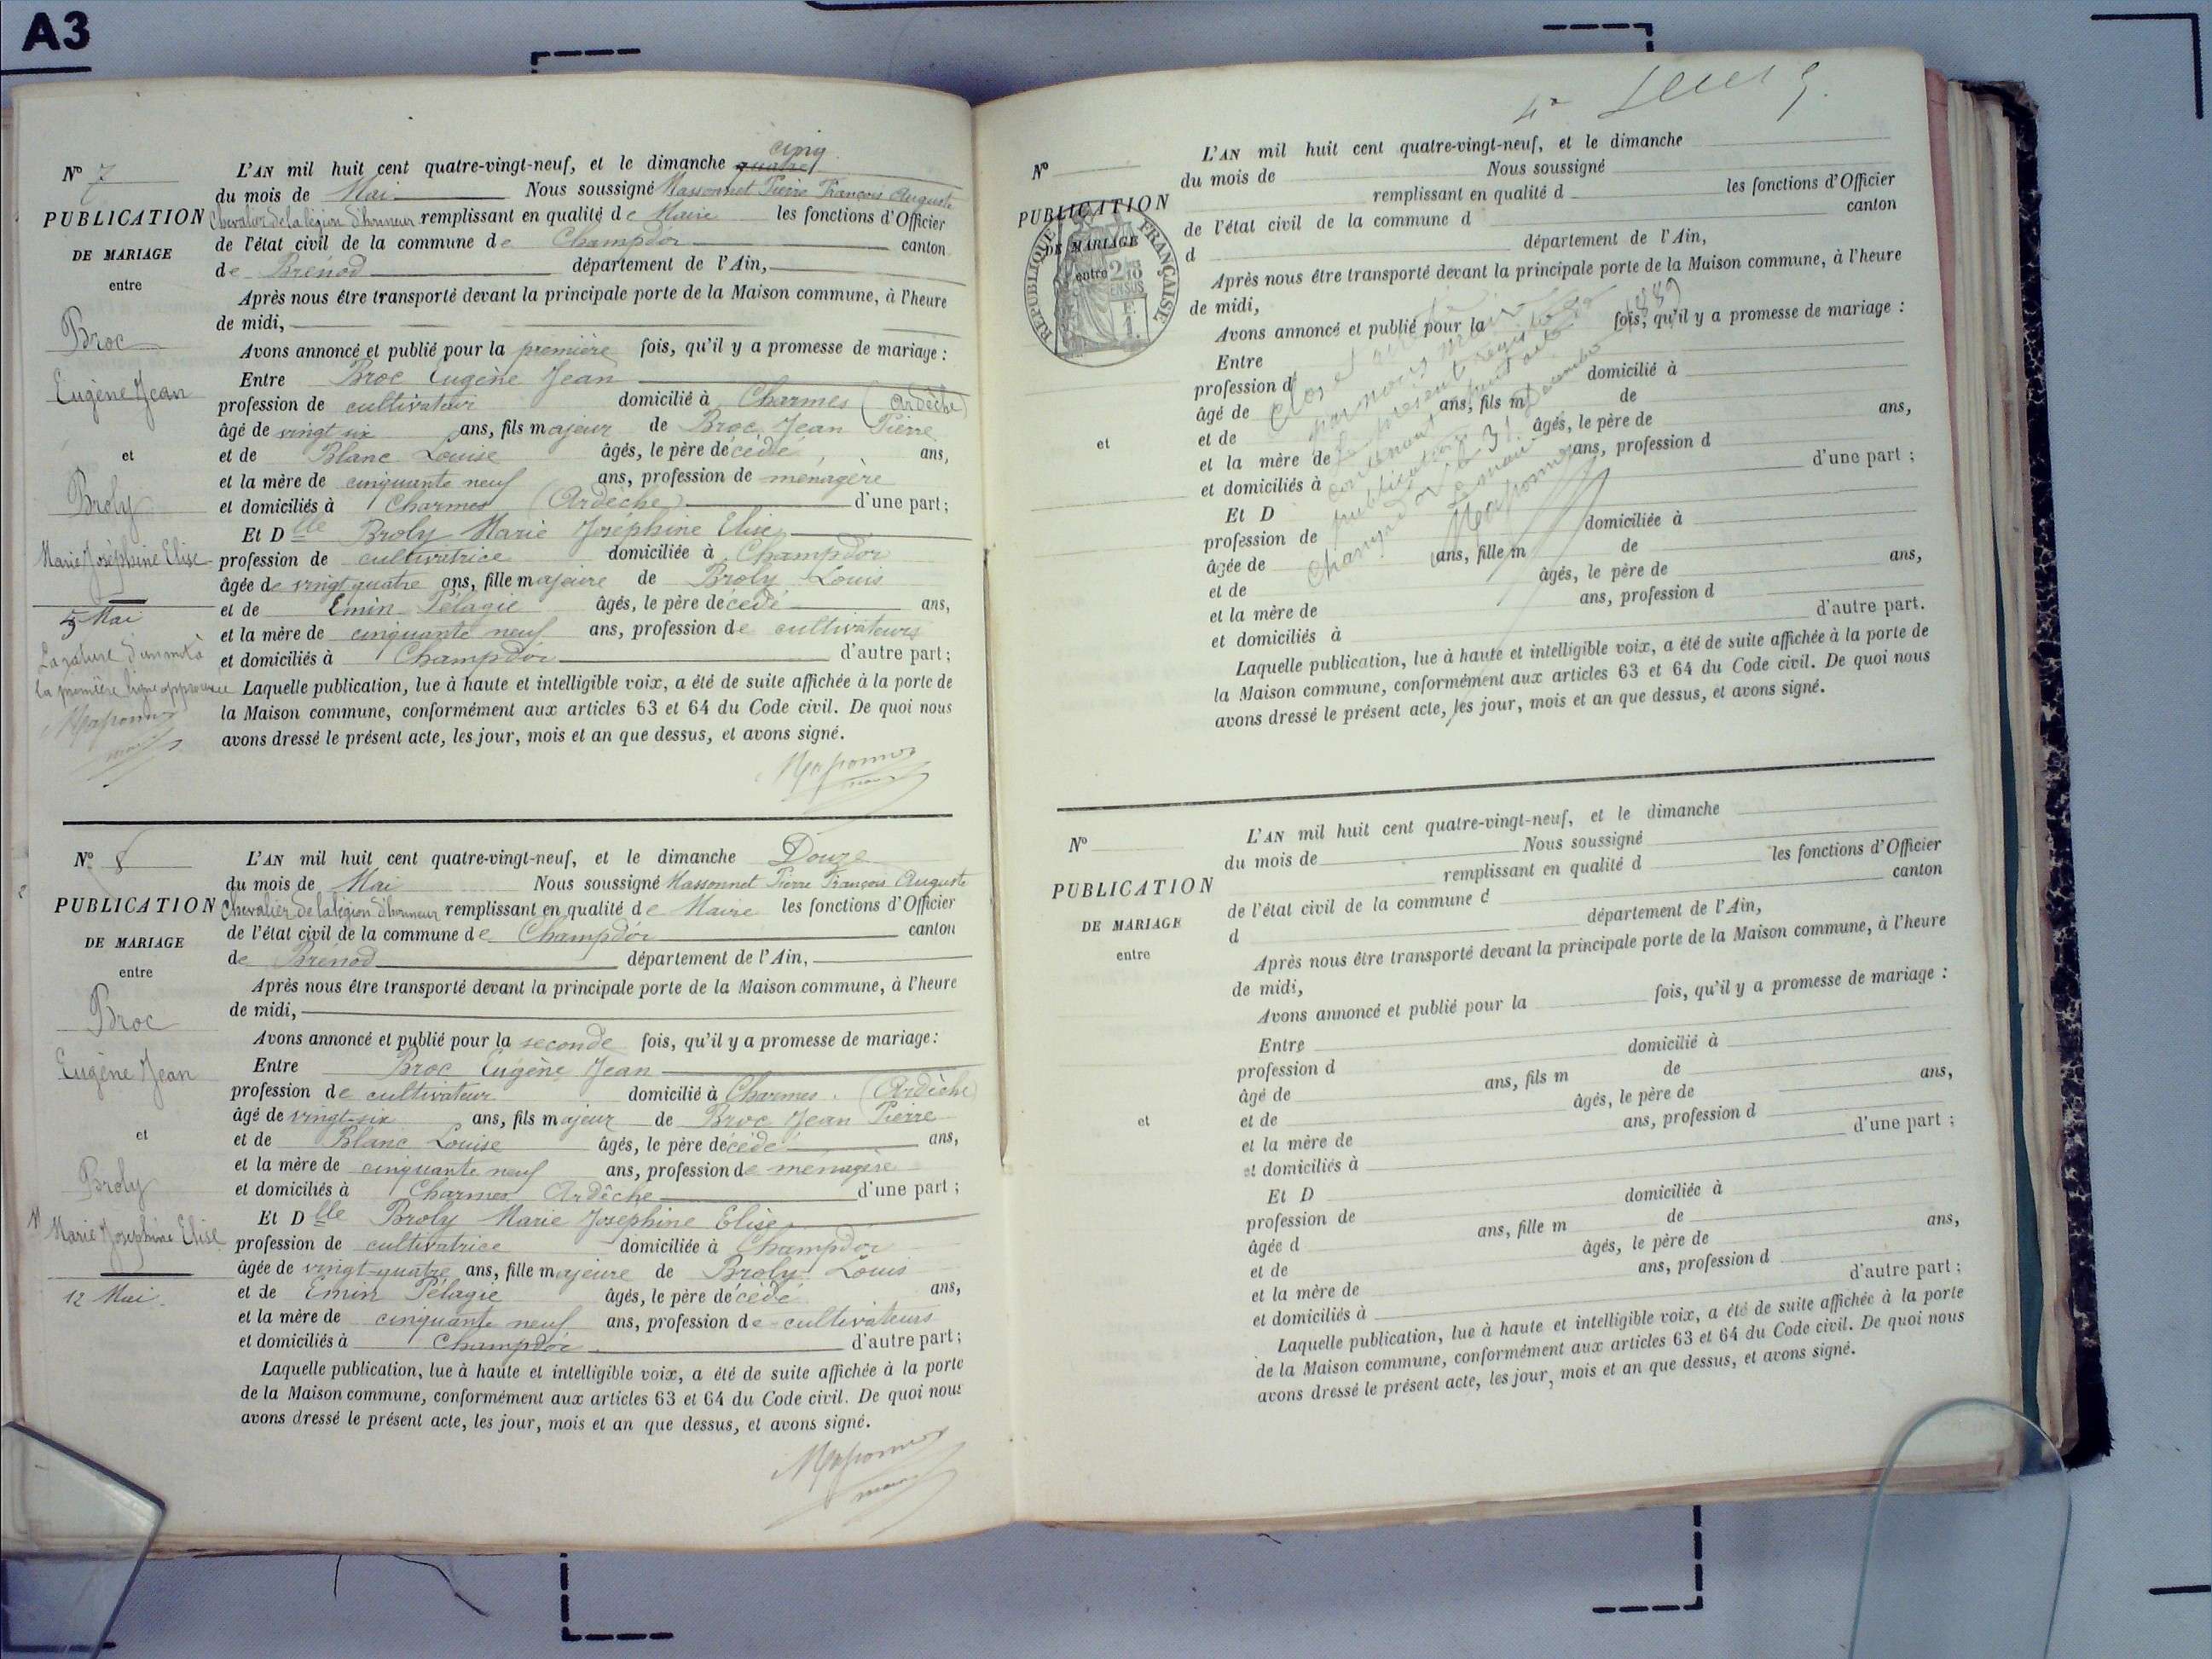 A3
N° 7
PUBLICATION
DE MARIAGE
entre
Broc
Eugène Jean
et
Broly
Marie Joséphine Elise
5 Mai
La rature d'un mot à
la première ligne approuvée
L'AN mil huit cent quatre-vingt-neuf, et le dimanche quatre cinq
du mois de Mai Nous soussigné Massonnet Pierre François Auguste
Chevalier de la légion d'honneur remplissant en qualité de Maire les fonctions d'Officier
de l'état civil de la commune de Champdor canton
de Brénod département de l'Ain,
Après nous être transporté devant la principale porte de la Maison commune, à l'heure
de midi,
Avons annoncé et publié pour la première fois, qu'il y a promesse de mariage :
Entre Broc Eugène Jean
profession de cultivateur domicilié à Charmes (Ardèche)
âgé de vingt six ans, fils majeur de Broc Jean Pierre
et de Blanc Louise âgés, le père décédé ans,
et la mère de cinquante neuf ans, profession de ménagère
et domiciliés à Charmes (Ardèche) d'une part ;
Et Dlle Broly Marie Joséphine Elise
profession de cultivatrice domiciliée à Champdor
âgée de vingt quatre ans, fille majeure de Broly Louis
et de Emin Pélagie âgés, le père décédé ans,
et la mère de cinquante neuf ans, profession de cultivateurs
et domiciliés à Champdor d'autre part ;
Laquelle publication, lue à haute et intelligible voix, a été de suite affichée à la porte de
la Maison commune, conformément aux articles 63 et 64 du Code civil. De quoi nous
avons dressé le présent acte, les jour, mois et an que dessus, et avons signé.
N° 8
PUBLICATION
DE MARIAGE
entre
Broc
Eugène Jean
et
Broly
Marie Joséphine Elise
12 Mai
L'AN mil huit cent quatre-vingt-neuf, et le dimanche Douze
du mois de Mai Nous soussigné Massonnet Pierre François Auguste
Chevalier de la légion d'honneur remplissant en qualité de Maire les fonctions d'Officier
de l'état civil de la commune de Champdor canton
de Brenod département de l'Ain,
Après nous être transporté devant la principale porte de la Maison commune, à l'heure
de midi,
Avons annoncé et publié pour la seconde fois, qu'il y a promesse de mariage :
Entre Broc Eugène Jean
profession de cultivateur domicilié à Charmes (Ardèche)
âgé de vingt-six ans, fils majeur de Broc Jean Pierre
et de Blanc Louise âgés, le père décédé ans,
et la mère de cinquante neuf ans, profession de ménagère
et domiciliés à Charmes Ardèche d'une part ;
Et Dlle Broly Marie Joséphine Elise
profession de cultivatrice domiciliée à Champdor
âgée de vingt-quatre ans, fille majeure de Broly Louis
et de Emin Pélagie âgés, le père décédé ans,
et la mère de cinquante neuf ans, profession de cultivateurs
et domiciliés à Champdor d'autre part ;
Laquelle publication, lue à haute et intelligible voix, a été de suite affichée à la porte
de la Maison commune, conformément aux articles 63 et 64 du Code civil. De quoi nous
avons dressé le présent acte, les jour, mois et an que dessus, et avons signé.
N°
PUBLICATION
DE MARIAGE
entre
et
RÉPUBLIQUE FRANÇAISE
L'AN mil huit cent quatre-vingt-neuf, et le dimanche
du mois de Nous soussigné
remplissant en qualité d les fonctions d'Officier
de l'état civil de la commune d canton
d département de l'Ain,
Après nous être transporté devant la principale porte de la Maison commune, à l'heure
de midi,
Avons annoncé et publié pour la fois, qu'il y a promesse de mariage :
Entre
profession d domicilié à
âgé de ans, fils m de
et de âgés, le père de ans,
et la mère de ans, profession d
et domiciliés à d'une part ;
Et D
profession de domiciliée à
âgée de ans, fille m de
et de âgés, le père de ans,
et la mère de ans, profession d
et domiciliés à d'autre part.
Laquelle publication, lue à haute et intelligible voix, a été de suite affichée à la porte de
la Maison commune, conformément aux articles 63 et 64 du Code civil. De quoi nous
avons dressé le présent acte, les jour, mois et an que dessus, et avons signé.
Clos et arrêté
par nous Maire
le présent registre
contenant huit actes
publication
Champdor le 31 Décembre 1889
Le maire
N°
PUBLICATION
DE MARIAGE
entre
et
L'AN mil huit cent quatre-vingt-neuf, et le dimanche
du mois de Nous soussigné
remplissant en qualité d les fonctions d'Officier
de l'état civil de la commune d canton
d département de l'Ain,
Après nous être transporté devant la principale porte de la Maison commune, à l'heure
de midi,
Avons annoncé et publié pour la fois, qu'il y a promesse de mariage :
Entre
profession d domicilié à
âgé de ans, fils m de
et de âgés, le père de ans,
et la mère de ans, profession d
et domiciliés à d'une part ;
Et D
profession de domiciliée à
âgée d ans, fille m de
et de âgés, le père de ans,
et la mère de ans, profession d
et domiciliés à d'autre part ;
Laquelle publication, lue à haute et intelligible voix, a été de suite affichée à la porte
de la Maison commune, conformément aux articles 63 et 64 du Code civil. De quoi nous
avons dressé le présent acte, les jour, mois et an que dessus, et avons signé.